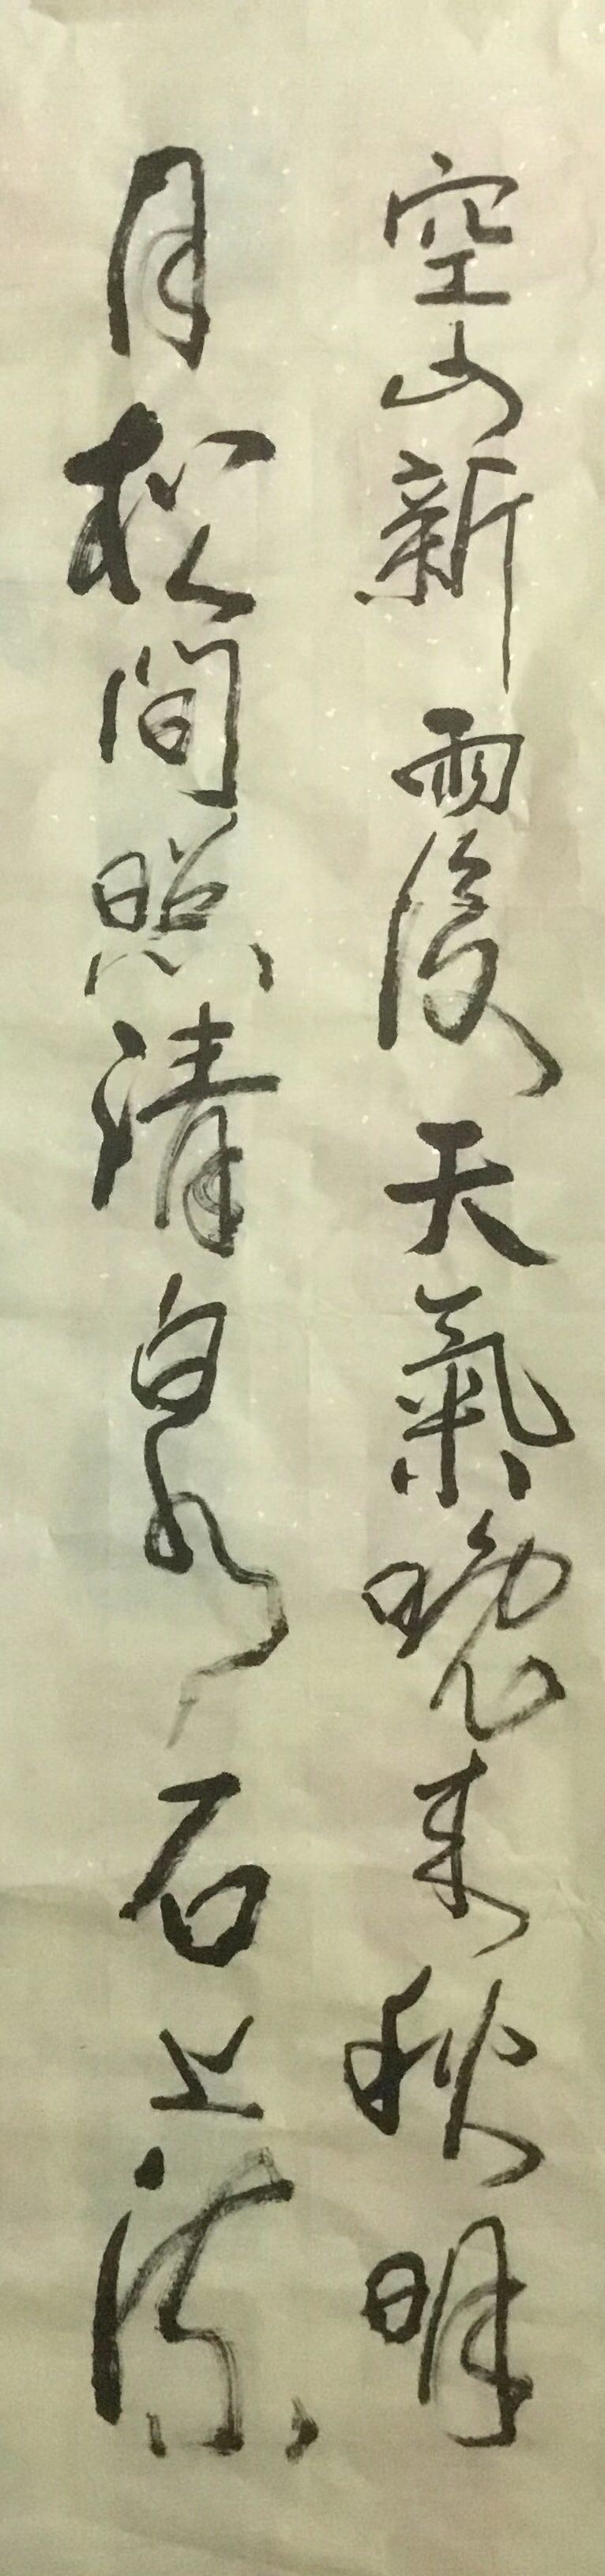 空山新雨後天氣晚来秋明
月松間照清泉石上流